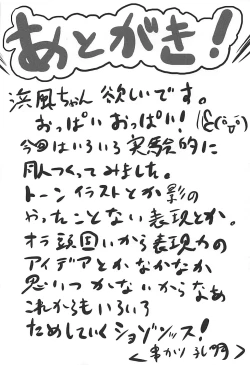 あとがき!
浜風ちゃん欲しいです。
おっぱいおっぱい!
今回はいろいろ実験的に
つくってみました。
トーンイラストとか影の
やったことない表現とか。
オラ頭固いから表現力の
アイデアとかなかなか
思いつかないからなあ
これからもいろいろ
ためしていくショゾンッス!
串かつ